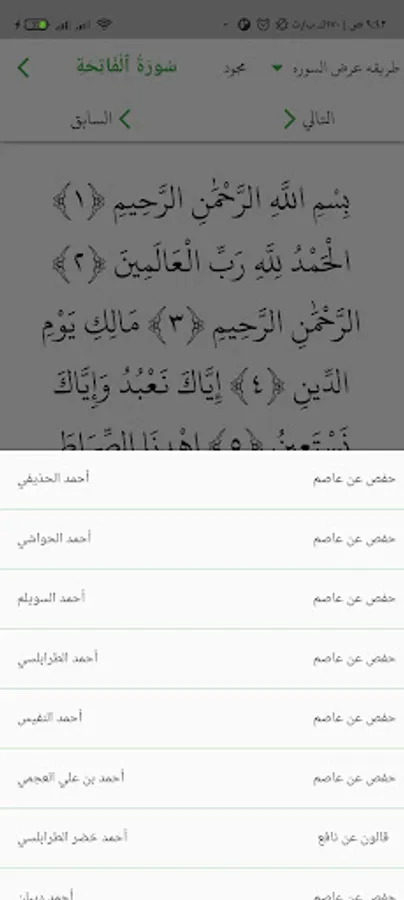 ٩:٤٢ ص
طريقه عرض السوره
مجود
سُورَةُ ٱلْفَاتِحَةِ
التالي
السابق
بِسْمِ اللَّهِ الرَّحْمَٰنِ الرَّحِيمِ ﴿١﴾
الْحَمْدُ لِلَّهِ رَبِّ الْعَالَمِينَ ﴿٢﴾
الرَّحْمَٰنِ الرَّحِيمِ ﴿٣﴾ مَالِكِ يَوْمِ
الدِّينِ ﴿٤﴾ إِيَّاكَ نَعْبُدُ وَإِيَّاكَ
نَسْتَعِينُ ﴿٥﴾ اهْدِنَا الصِّرَاطَ
حفص عن عاصم أحمد الحذيفي
حفص عن عاصم أحمد الحواشي
حفص عن عاصم أحمد السويلم
حفص عن عاصم أحمد الطرابلسي
حفص عن عاصم أحمد النفيس
حفص عن عاصم أحمد بن علي العجمي
قالون عن نافع أحمد خضر الطرابلسي
حفص عن عاصم أحمد ديبان